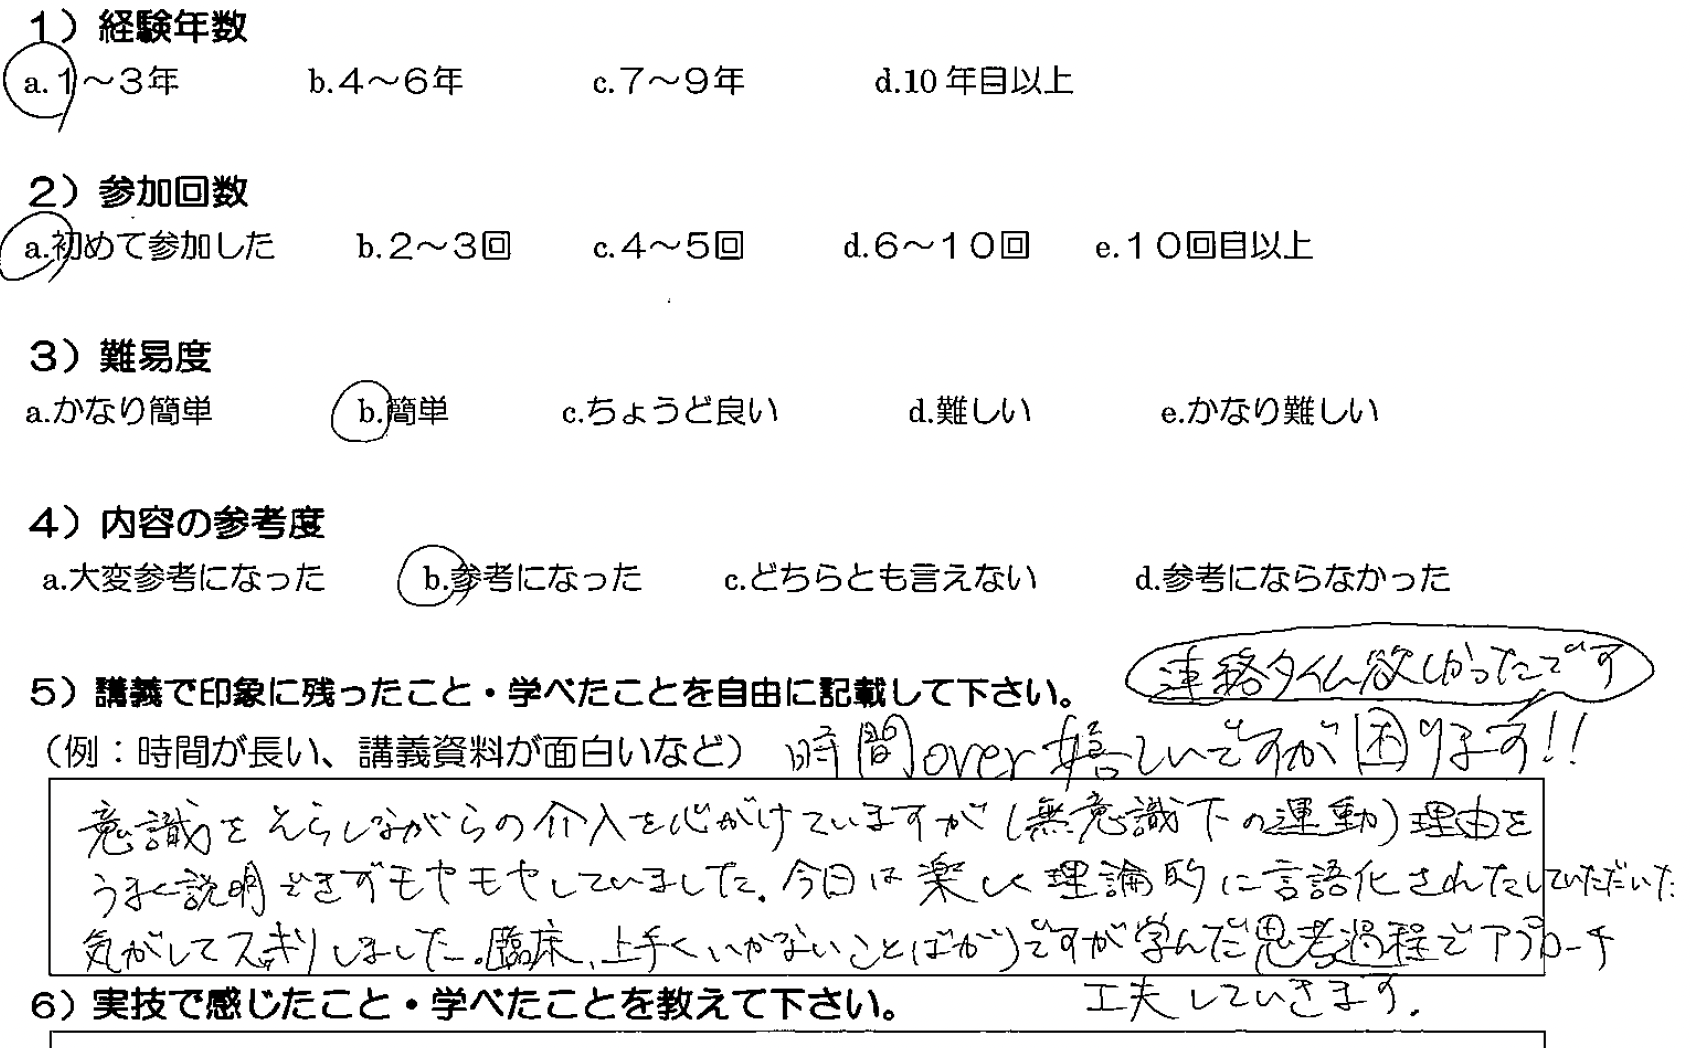 1）経験年数
a.1～3年 b.4～6年 c.7～9年 d.10年目以上
2）参加回数
a.初めて参加した b.2～3回 c.4～5回 d.6～10回 e.10回目以上
3）難易度
a.かなり簡単 b.簡単 c.ちょうど良い d.難しい e.かなり難しい
4）内容の参考度
a.大変参考になった b.参考になった c.どちらとも言えない d.参考にならなかった
連絡タイム欲しかったです
5）講義で印象に残ったこと・学べたことを自由に記載して下さい。
（例：時間が長い、講義資料が面白いなど） 時間over嬉しいですが困ります!!
意識をそらしながらの介入を心がけていますが(無意識下の運動)理由を
うまく説明できずモヤモヤしていました.今日は楽しく理論的に言語化されたしていただいた
気がしてスッキリしました。臨床、上手くいかないことばかりですが学んだ思考過程でアプローチ
工夫していきます.
6）実技で感じたこと・学べたことを教えて下さい。